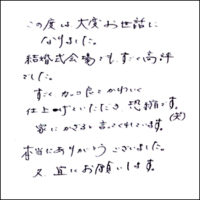 この度は大変お世話に
なりました。
結婚式会場でも、すごく高評
でした。
すごくカッコよくかわいく
仕上げていただき、恐縮です。(笑)
家にかざると言ってくれています。
本当にありがとうございました。
又、宜しくお願いします。